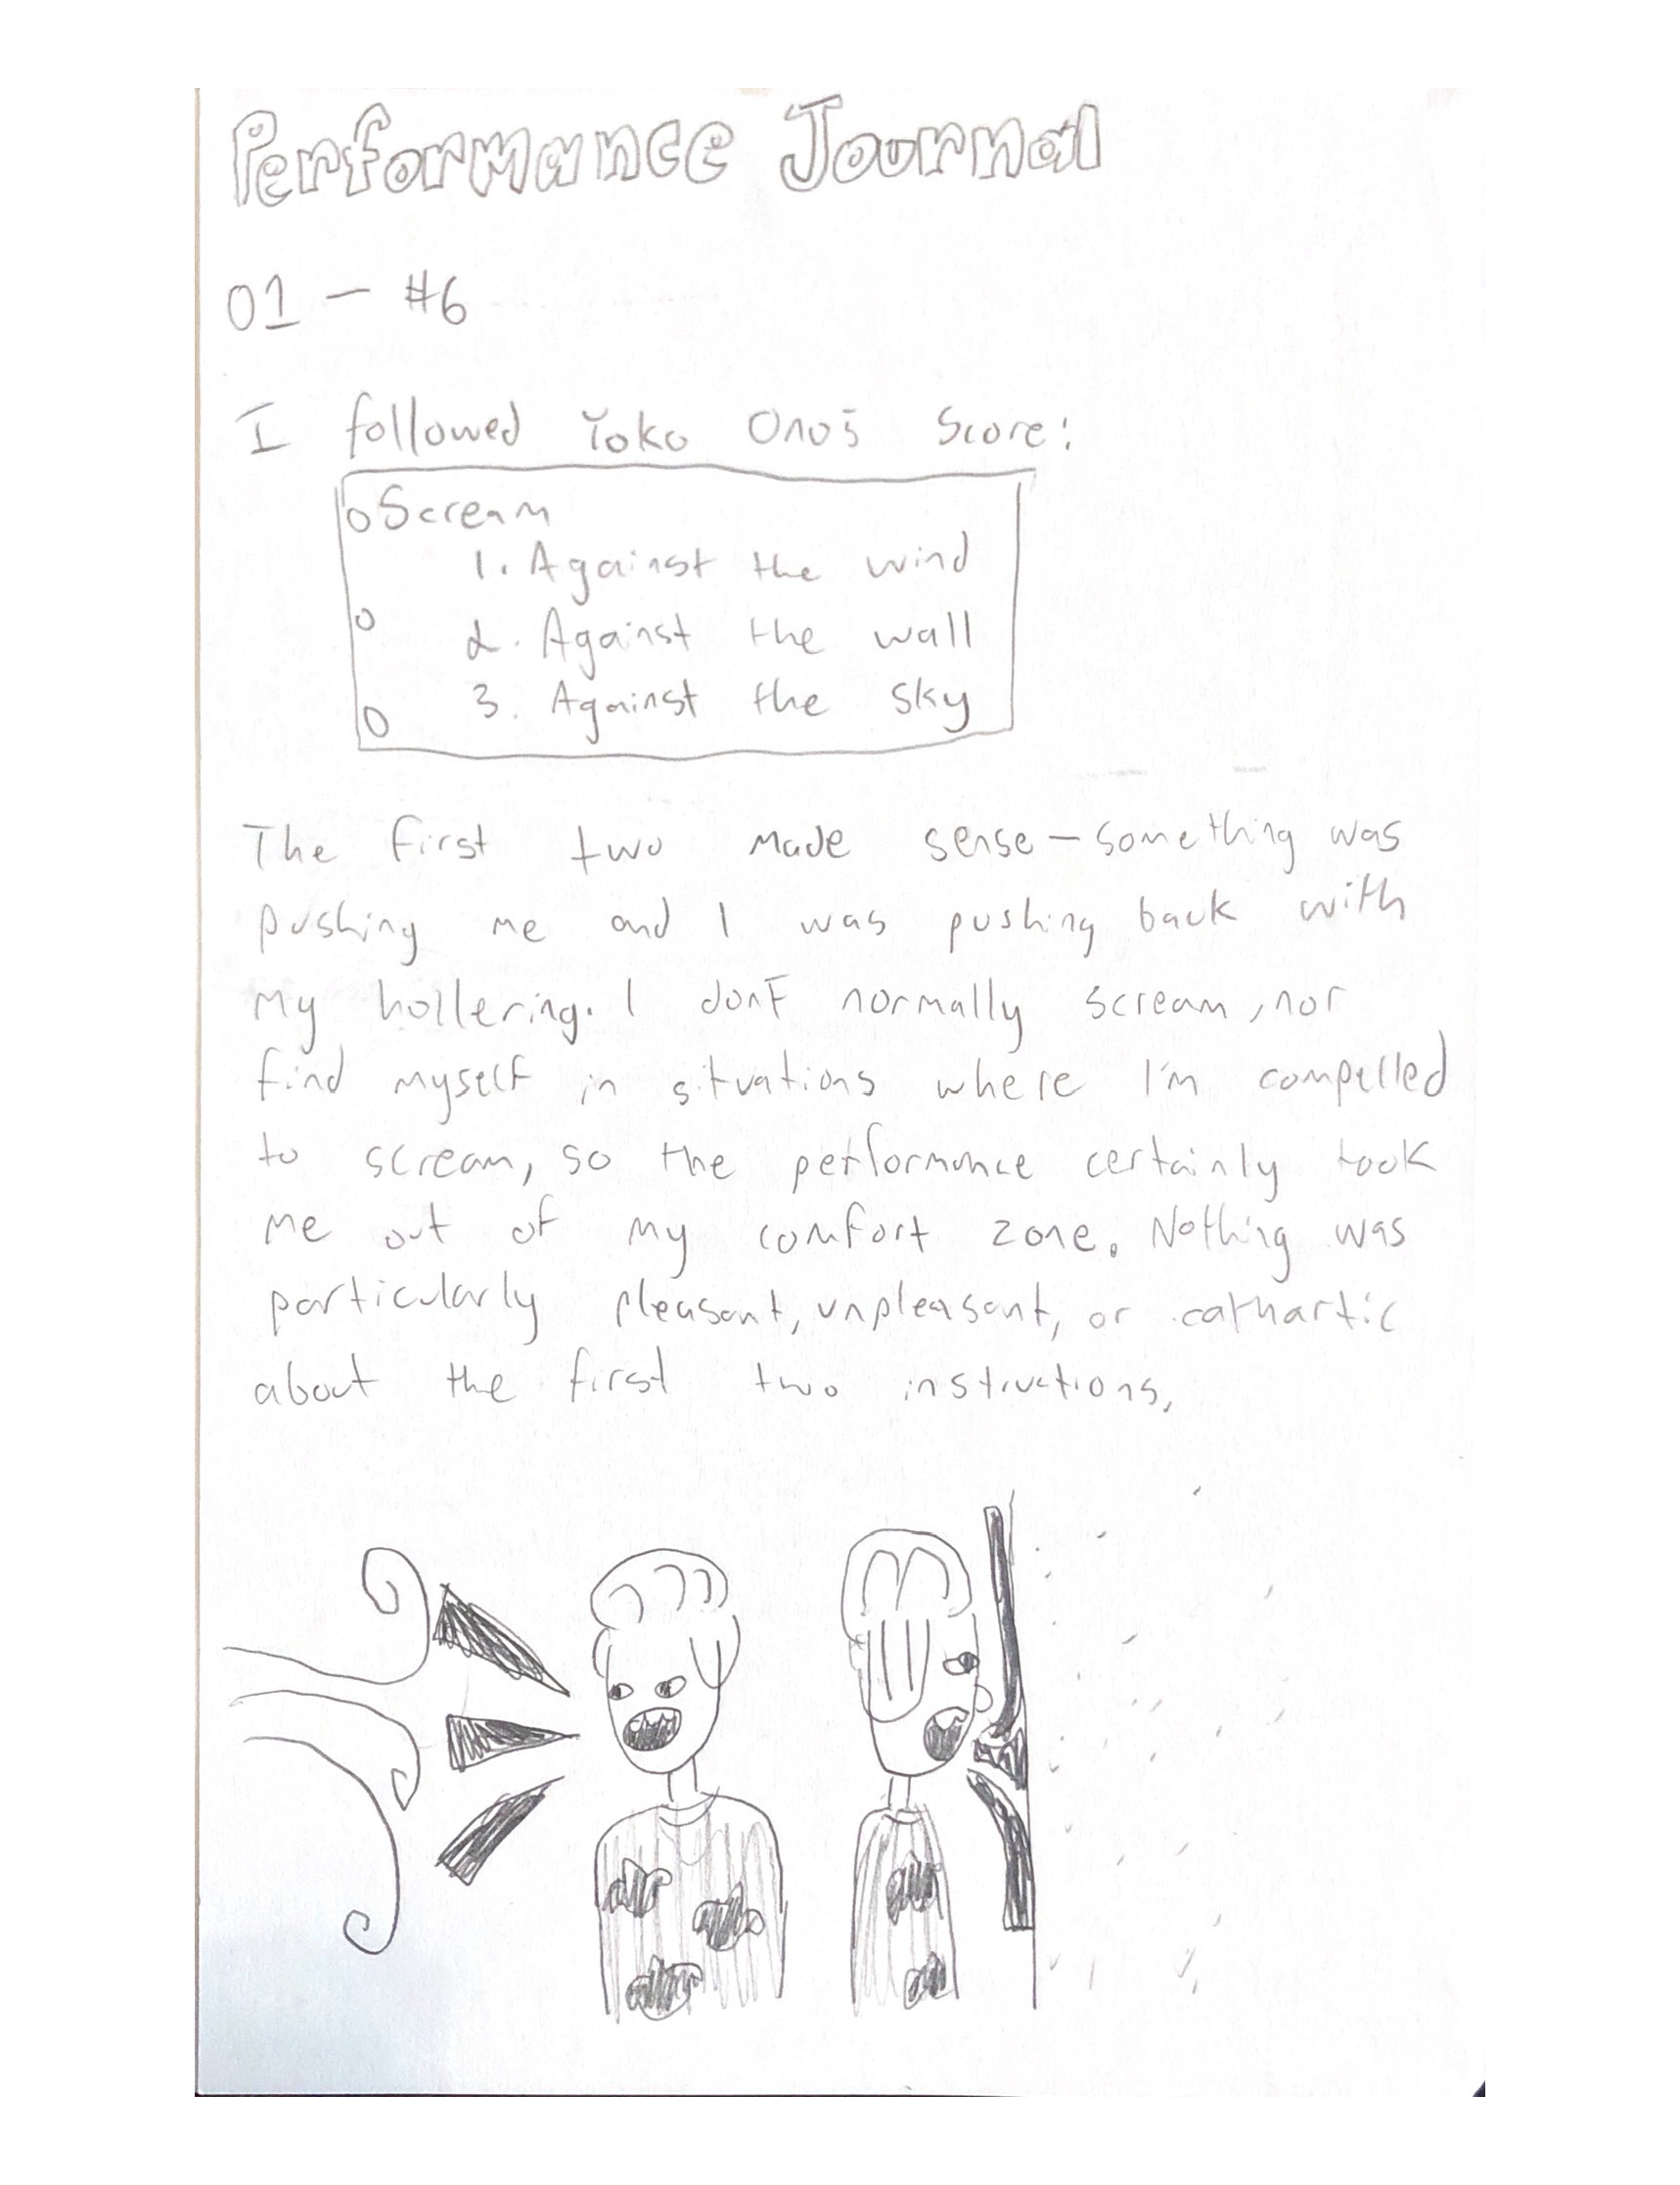 Performance Journal
01 — #6
I followed Yoko Ono's Score:
Scream
1. Against the wind
2. Against the wall
3. Against the sky
The first two made sense — something was
pushing me and I was pushing back with
my hollering. I don't normally scream, nor
find myself in situations where I'm compelled
to scream, so the performance certainly took
me out of my comfort zone. Nothing was
particularly pleasant, unpleasant, or cathartic
about the first two instructions,